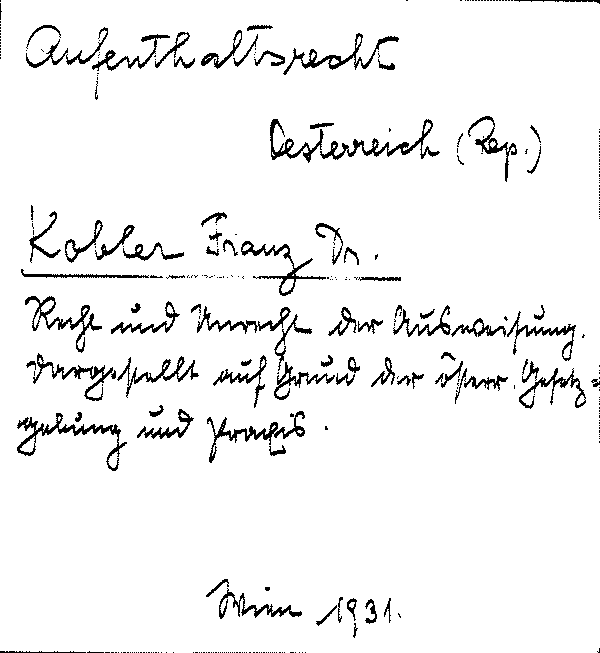 Aufenthaltsrecht
Oesterreich (Rep.)
Kobler Franz Dr.
Recht und Unrecht der Ausweisung.
Dargestellt auf Grund der österr. Gesetz=
gebung und Praxis.
Wien 1931.